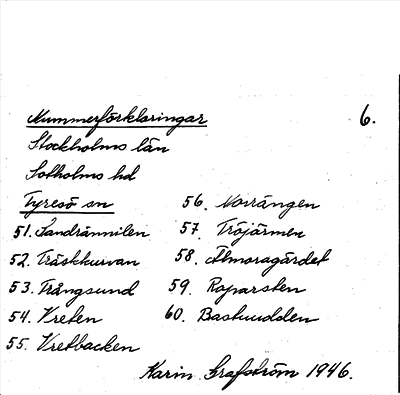 Nummerförklaringar 6.
Stockholms län
Sotholms hd
Tyresö sn
51. Sandrännilen
52. Träskkurvan
53. Trångsund
54. Kreten
55. Vretbacken
56. Norrängen
57. Tröjärmen
58. Almoragärdet
59. Roparsten
60. Bastuudden
Karin Grafström 1946.